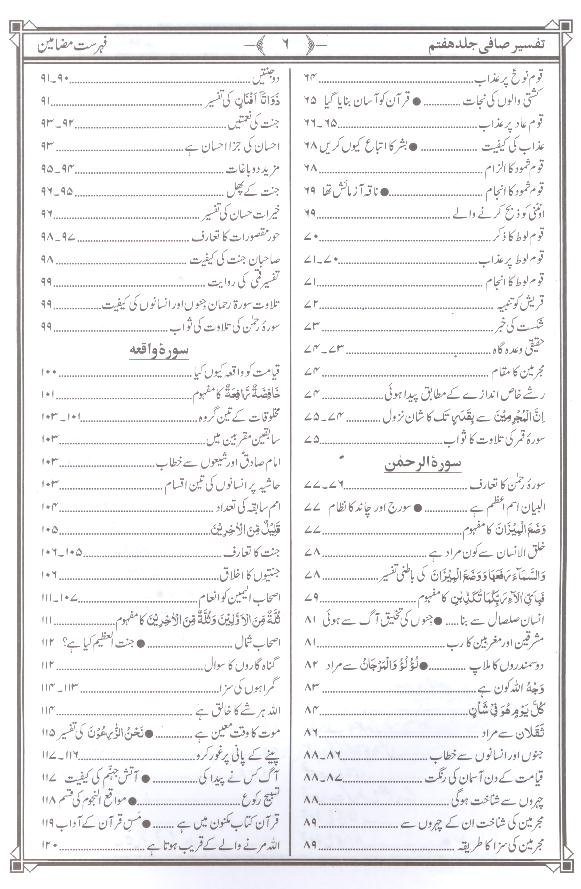 تفسیر صافی جلد ہفتم
۶
فہرست مضامین
قوم نوحؑ پر عذاب ۶۴
کشتی والوں کی نجات ● قرآن کو آسان بنایا گیا ۶۵
قوم عاد پر عذاب ۶۵۔۶۶
عذاب کی کیفیت ● بشر کا اتباع کیوں کریں ۶۸
قوم ثمود کا الزام ۶۸
قوم ثمود کا انجام ● ناقہ آزمائش تھا ۶۹
اونٹنی کو ذبح کرنے والے ۶۹
قوم لوط کا ذکر ۷۰
قوم لوط پر عذاب ۷۰۔۷۱
قوم لوط کا انجام ۷۱
قریش کو تنبیہ ۷۲
شکست کی خبر ۷۳
حقیقی وعدہ گاہ ۷۳۔۷۴
مجرمین کا مقام ۷۴
ہر شے خاص اندازے کے مطابق پیدا ہوئی ۷۴
اِنَّ الْمُجْرِمِيْنَ سے بِقَدَرٍ تک کا شان نزول ۷۴۔۷۵
سورۂ قمر کی تلاوت کا ثواب ۷۵
سورۃ الرحمٰن
سورۂ رحمٰن کا تعارف ۷۶۔۷۷
البیان اسم اعظم ہے ● سورج اور چاند کا نظام ۷۷
وَضَعَ الْمِيْزَانَ کا مفہوم ۷۷
خلق الانسان سے کون مراد ہے ۷۸
وَالسَّمَآءَ رَفَعَهَا وَوَضَعَ الْمِيْزَانَ کی باطنی تفسیر ۷۸
فَبِاَيِّ اٰلَآءِ رَبِّكُمَا تُكَذِّبٰنِ کا مفہوم ۷۹
انسان صلصال سے بنا ● جنوں کی تخلیق آگ سے ہوئی ۸۱
مشرقین اور مغربین کا رب ۸۱
دو سمندروں کا ملاپ ● لُؤْلُؤُ وَالْمَرْجَانُ سے مراد ۸۲
وَجْهُ اللہ کون ہے ۸۳
كُلَّ يَوْمٍ هُوَ فِيْ شَاْنٍ ۸۴
ثَقَلَان سے مراد ۸۶
جنوں اور انسانوں سے خطاب ۸۶۔۸۸
قیامت کے دن آسمان کی رنگت ۸۷۔۸۸
چہروں سے شناخت ہوگی ۸۸
مجرمین کی شناخت ان کے چہروں سے ۸۹
مجرمین کی سزا کا طریقہ ۸۹
دو جنتیں ۹۰۔۹۱
ذَوَاتَآ اَفْنَانٍ کی تفسیر ۹۱
جنت کی نعمتیں ۹۲۔۹۳
احسان کی جزا احسان ہے ۹۳
مزید دو باغات ۹۴۔۹۵
جنت کے پھل ۹۵۔۹۶
خیرات حسان کی تفسیر ۹۶
حور مقصورات کا تعارف ۹۷۔۹۸
صاحبان جنت کی کیفیت ۹۸
تفسیر قمی کی روایت ۹۹
تلاوت سورۂ رحمان جنوں اور انسانوں کی کیفیت ۹۹
سورۂ رحمٰن کی تلاوت کی ثواب ۹۹
سورۂ واقعہ
قیامت کو واقعہ کیوں کیا ۱۰۰
خَافِضَةٌ رَّافِعَةٌ کا مفہوم ۱۰۱
مخلوقات کے تین گروہ ۱۰۱۔۱۰۳
سابقین مقربین میں ۱۰۳
امام صادقؑ اور شیعوں سے خطاب ۱۰۳
حاشیہ پر انسانوں کی تین اقسام ۱۰۳
امم سابقہ کی تعداد ۱۰۴
قَلِيْلٌ مِّنَ الْاٰخِرِيْنَ ۱۰۵
جنت کا تعارف ۱۰۵۔۱۰۶
جنتیوں کا اخلاق ۱۰۶
اصحاب الیمین کو انعام ۱۰۷۔۱۱۱
ثُلَّةٌ مِّنَ الْاَوَّلِيْنَ وَثُلَّةٌ مِّنَ الْاٰخِرِيْنَ کا مفہوم ۱۱۱
اصحاب شمال ● حنث العظیم کیا ہے؟ ۱۱۲
گناہ گاروں کا سوال ۱۱۲
گمراہوں کی سزا ۱۱۳۔۱۱۴
اللہ ہر شے کا خالق ہے ۱۱۴
موت کا وقت معین ہے ● نَحْنُ الزّٰرِعُوْنَ کی تفسیر ۱۱۵
پینے کے پانی پر غور کرو ۱۱۶۔۱۱۷
آگ کس نے پیدا کی ● آتش جہنّم کی کیفیت ۱۱۷
تسبیح رکوع ● مواقع النجوم کی قسم ۱۱۸
قرآن کتاب مکنون میں ہے ● مَسِ قرآن کے آداب ۱۱۹
اللہ مرنے والے کے قریب ہوتا ہے ۱۲۰